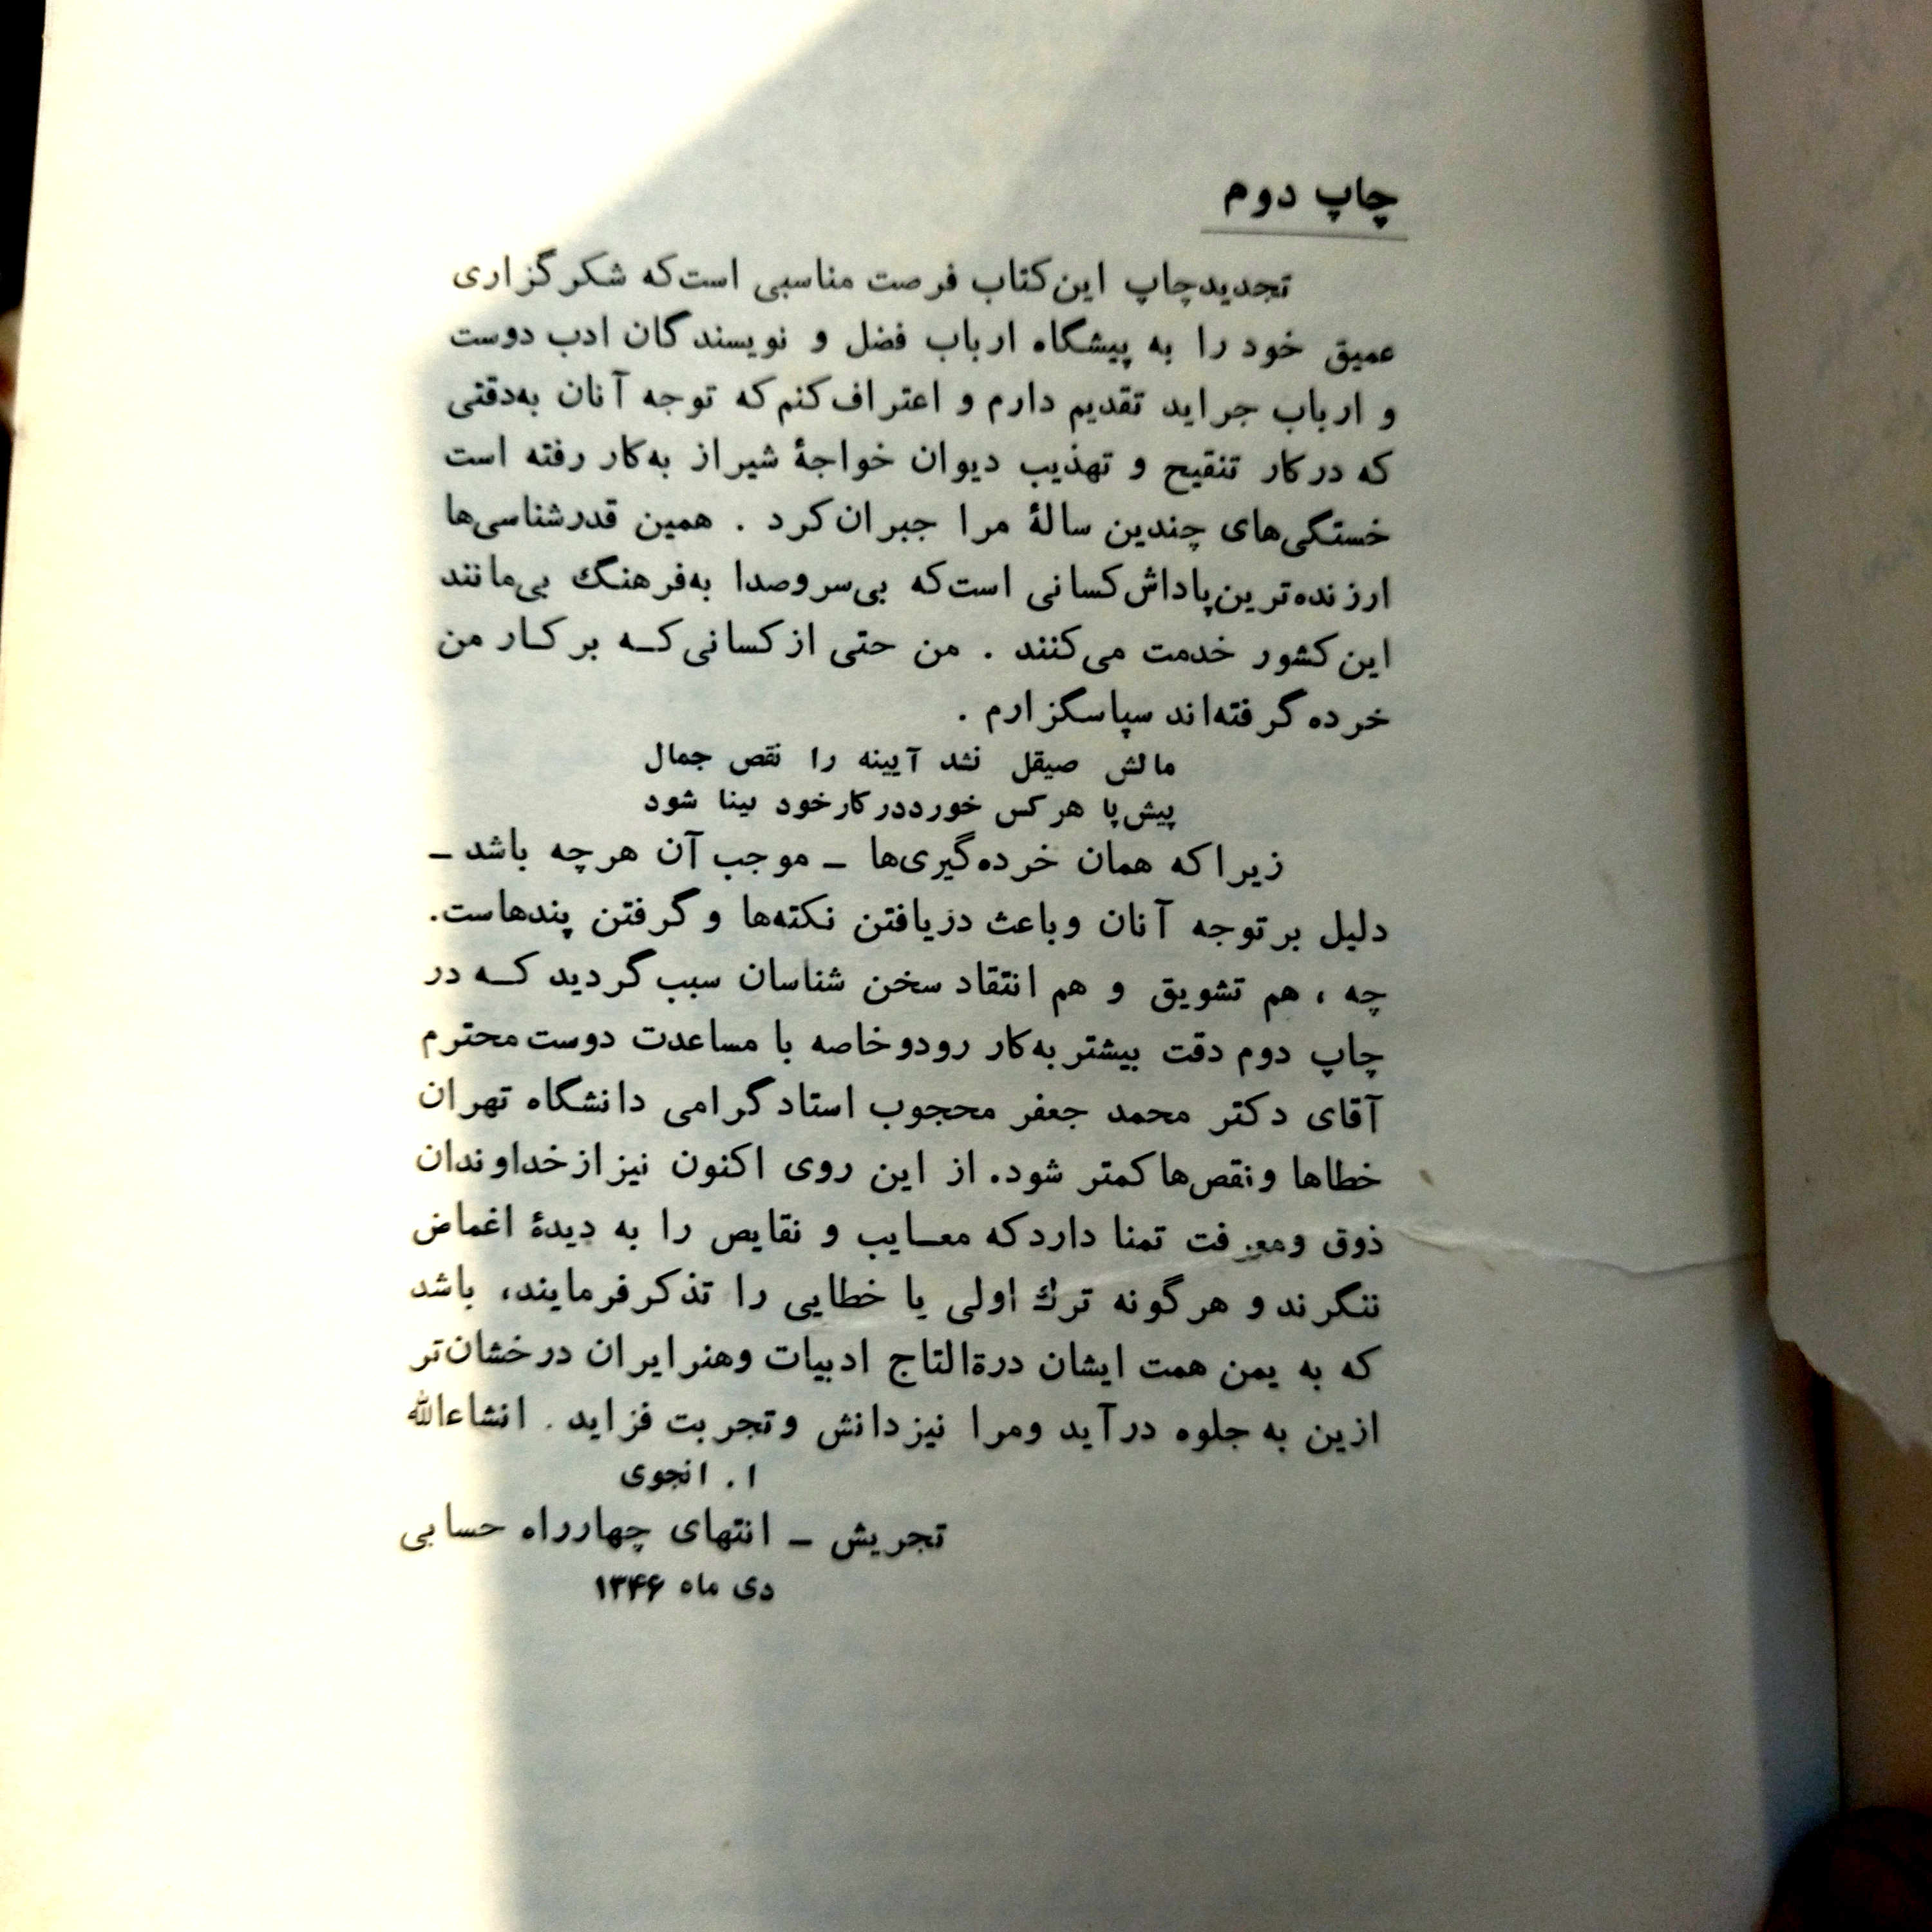 چاپ دوم
تجدید چاپ این کتاب فرصت مناسبی است که شکرگزاری
عمیق خود را به پیشگاه ارباب فضل و نویسندگان ادب دوست
و ارباب جراید تقدیم دارم و اعتراف کنم که توجه آنان به‌دقتی
که در کار تنقیح و تهذیب دیوان خواجهٔ شیراز به‌کار رفته است
خستگی‌های چندین سالهٔ مرا جبران کرد . همین قدرشناسی‌ها
ارزنده‌ترین پاداش کسانی است که بی‌سروصدا به‌فرهنگ بی‌مانند
این کشور خدمت می‌کنند . من حتی از کسانی کـه بر کـار من
خرده گرفته‌اند سپاسگزارم .
مالش صیقل نشد آیینه را نقص جمال
پیش پا هر کس خورد در کار خود بینا شود
زیرا که همان خرده‌گیری‌ها ـ موجب آن هرچه باشد ـ
دلیل بر توجه آنان و باعث دریافتن نکته‌ها و گرفتن پندهاست.
چه ، هم تشویق و هم انتقاد سخن شناسان سبب گردید کـه در
چاپ دوم دقت بیشتر به‌کار رود و خاصه با مساعدت دوست محترم
آقای دکتر محمد جعفر محجوب استاد گرامی دانشگاه تهران
خطاها و نقص‌ها کمتر شود. از این روی اکنون نیز از خداوندان
ذوق و معرفت تمنا دارد که معـایب و نقایص را به دیدهٔ اغماض
ننگرند و هر گونه ترك اولی یا خطایی را تذکر فرمایند، باشد
که به یمن همت ایشان درة‌التاج ادبیات و هنر ایران درخشان‌تر
ازین به جلوه درآید و مرا نیز دانش و تجربت فزاید . انشاءالله
ا . انجوی
تجریش ـ انتهای چهارراه حسابی
دی ماه ۱۳۴۶